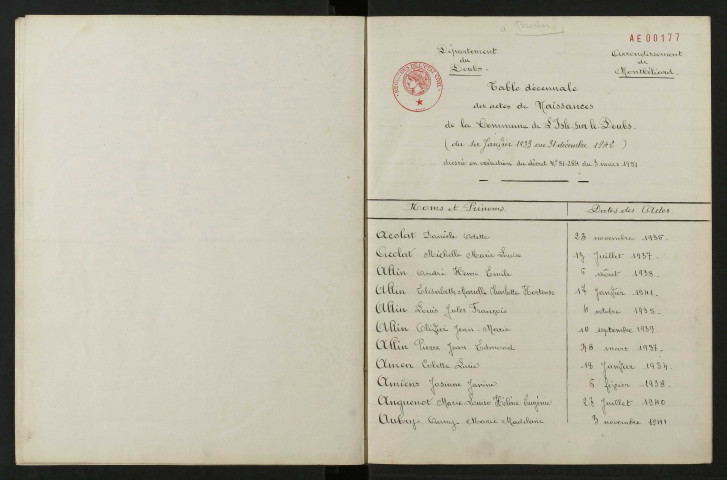 à Broder
AE00177
Département
du
Doubs.
Arrondissement
de
Montbéliard.
Table décennale
des actes de Naissances
de la Commune de L'Isle sur le Doubs.
(du 1er Janvier 1933 au 31 décembre 1942)
dressée en exécution du décret N° 51-284 du 3 mars 1951
Noms et Prénoms. Dates des Actes
Acolat Danièle Odette 23 novembre 1936.
Acolat Michelle Marie Louise 15 Juillet 1937.
Allin André Henri Emile 6 août 1938.
Allin Elisabeth Marcelle Charlotte Hortense 17 Janvier 1941.
Allin Louis Jules François 4 octobre 1935.
Allin Olivier Jean-Marie 10 septembre 1939.
Allin Pierre Jean Edmond 28 mars 1937.
Amon Colette Lucie 18 Janvier 1934.
Amiens Josiane Janine 6 février 1938.
Anguenot Marie Louise Hélène Eugénie 27 Juillet 1940.
Aubry Anny Marie Madeleine 3 novembre 1941